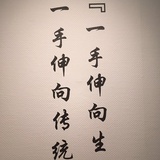 『一手伸向生
一手伸向传统